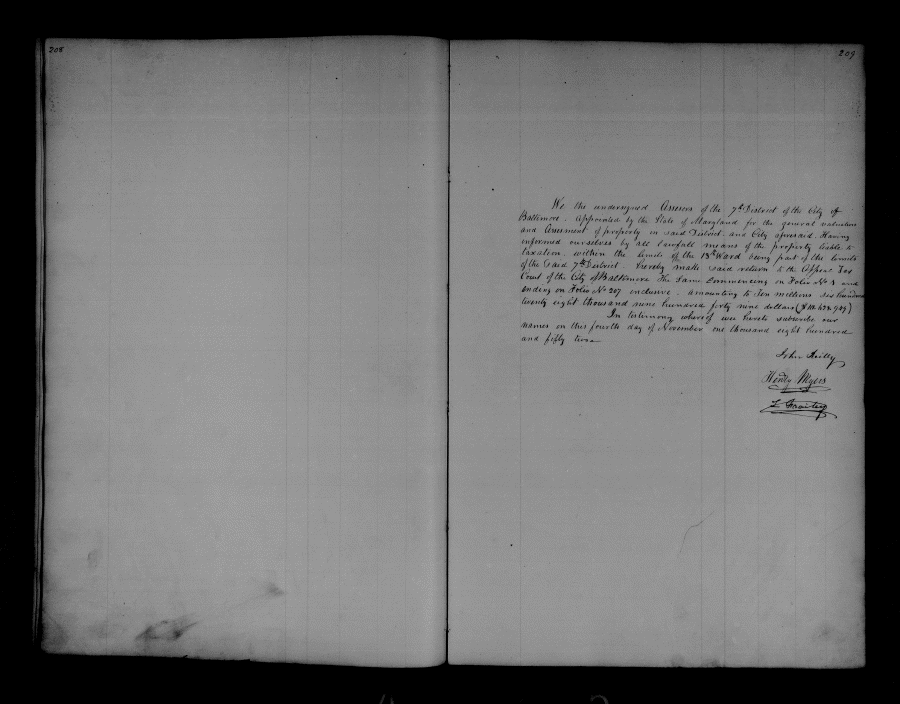 208
209
We the undersigned Assessors of the 7th District of the City of
Baltimore. Appointed by the State of Maryland for the general valuation
and Assessment of property in said District. and City aforesaid. Having
informed ourselves by all lawfull means of the property liable to
taxation. within the limits of the Ward being part of the limits
of the said 7th District. hereby make said return to the Appeal Tax
Court of the City of Baltimore The same Commencing on Folio No and
ending on Folio No 207 inclusive. amounting to millions six hundred
twenty eight thousand nine hundred forty nine dollars
In testimony whereof we hereto subscribe our
names on this fourth day of November one thousand eight hundred
and fifty two
John Reilly
Henry Myers